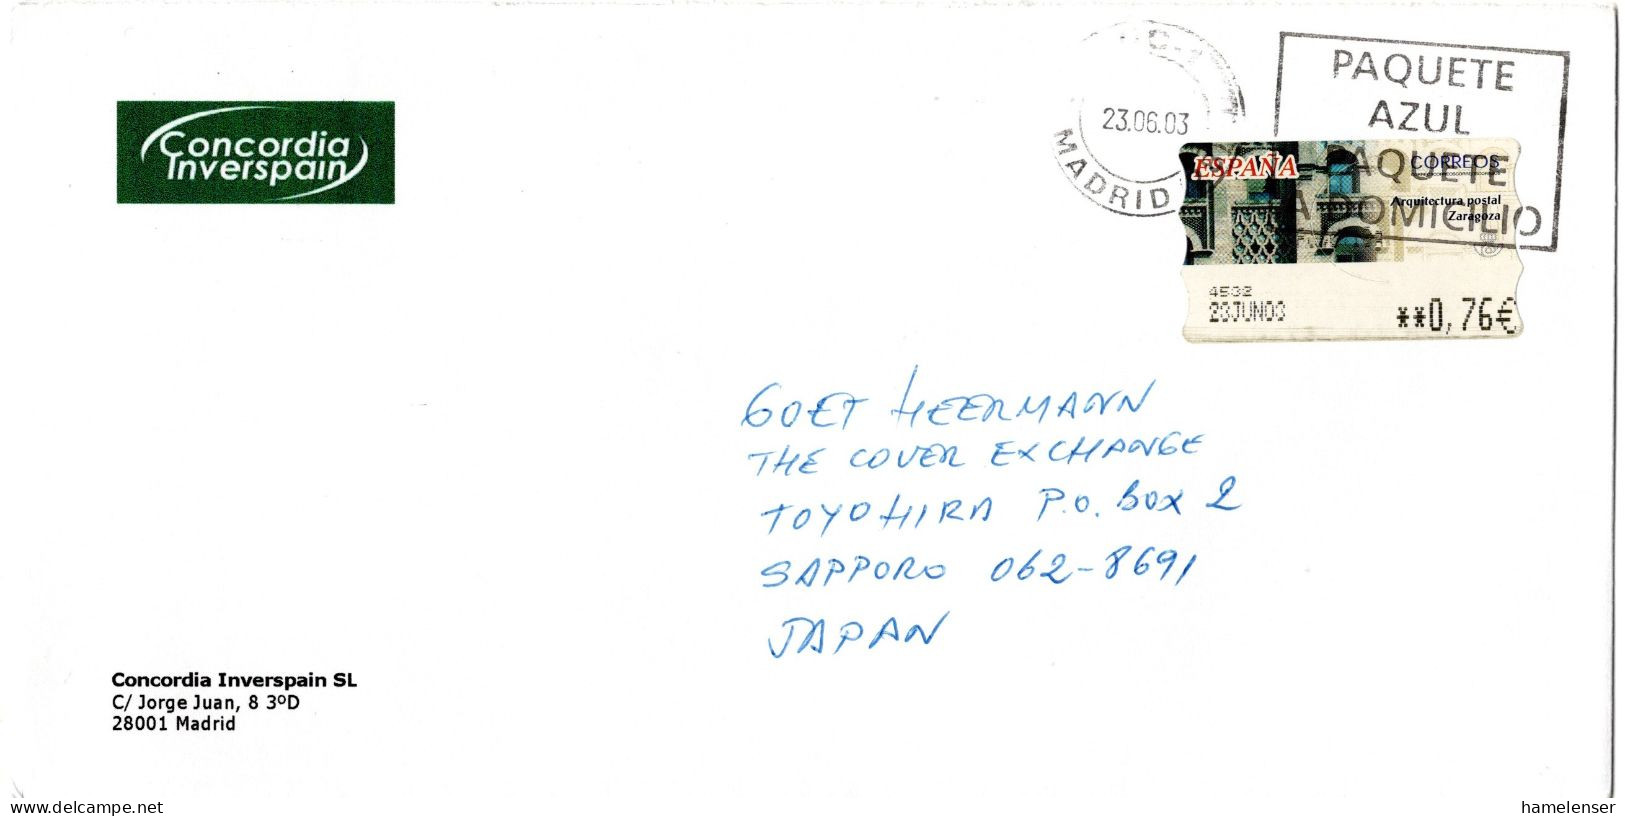 Concordia
Inverspain
D-1
23.06.03
MADRID
PAQUETE
AZUL
PAQUETE
A DOMICILIO
ESPAÑA
CORREOS
Arquitectura postal
Zaragoza
4532
23JUN03
**0,76€
GOET HEERMANN
THE COVER EXCHANGE
TOYOHIRA P.O. BOX 2
SAPPORO 062-8691
JAPAN
Concordia Inverspain SL
C/ Jorge Juan, 8 3ºD
28001 Madrid
www.delcampe.net
hamelenser